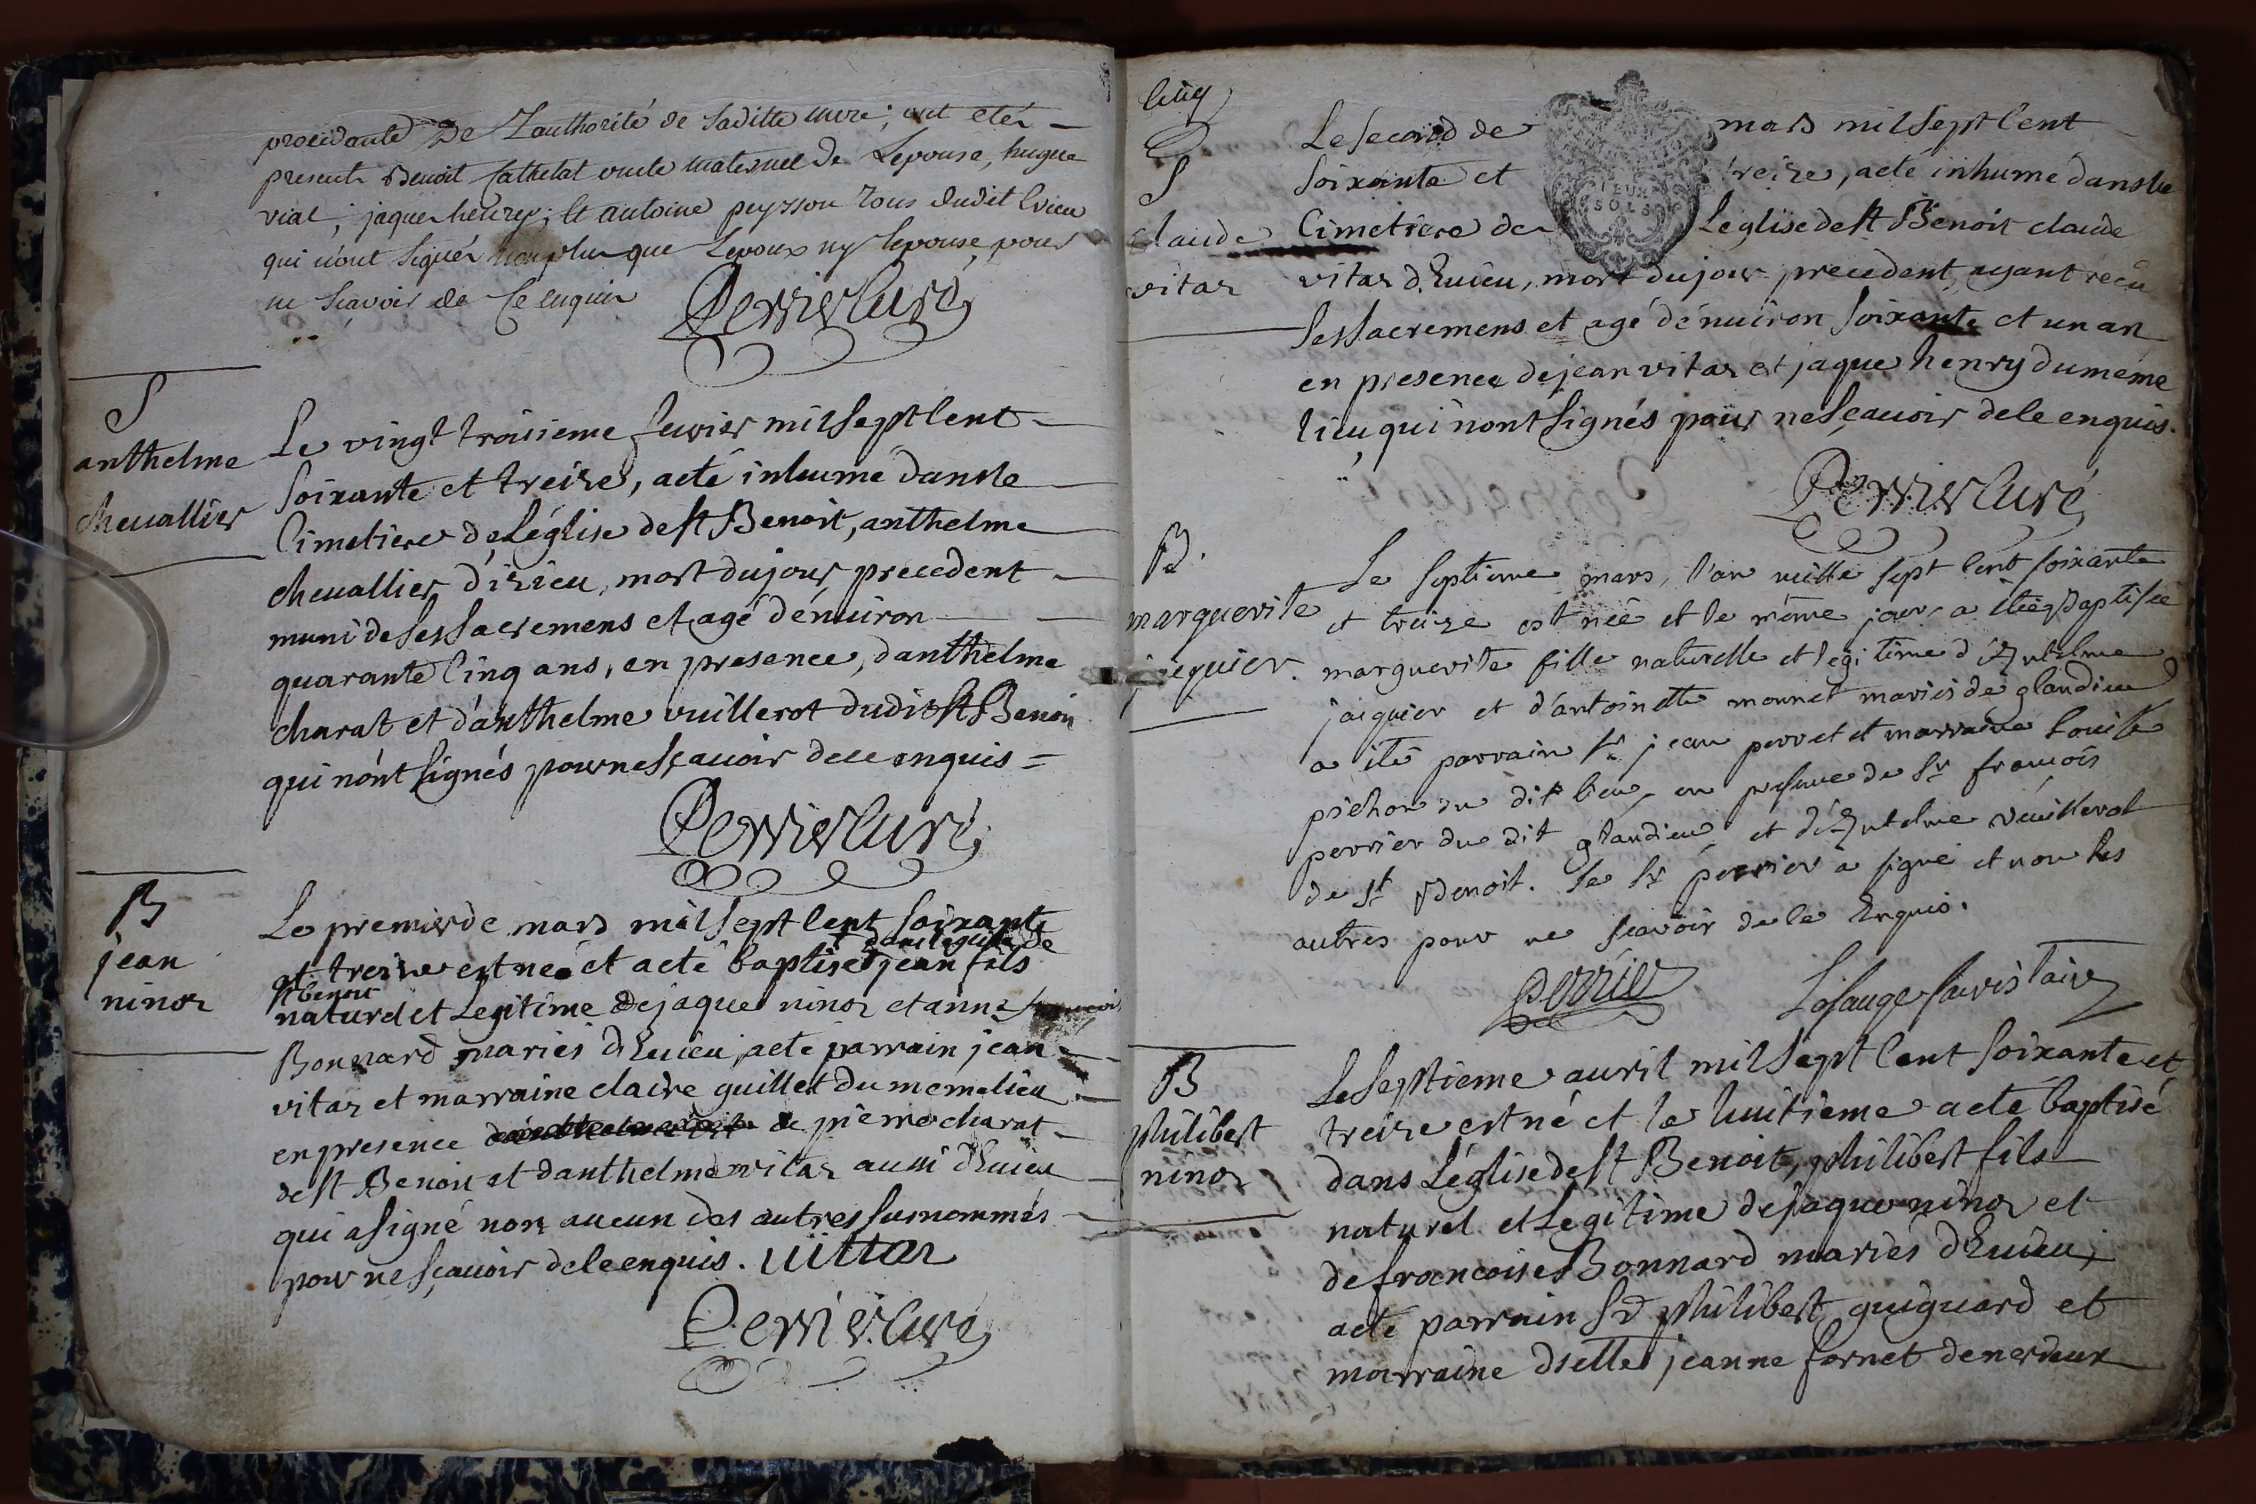 procedante De Lauthorité de Saditte mere; ont etés
presents Benoit Cathelat oncle maternel de Lepouse, hugue
vial; jaque henry; et antoine peysson tous dudit Evieu
qui n'ont signés non plus que Lepoux ny Lepouse, pour
ne sçavoir de Ce enquis
Perrier Curé
S
anthelme
chevallier
Le vingt troisieme fevrier mil Sept Cent
Soixante et treize, aété inhumé dans le
Cimetiere de Léglise de St Benoit, anthelme
chevallier d'izieu, mort du jour precedent
muni de Ses Sacremens et agé dénuiron
quarante Cinq ans, en presence, danthelme
charat et d'anthelme vuillerot dudit St Benoit
qui n'ont Signés pour ne Sçavoir de ce enquis =
Perrier Curé
B
jean
ninoz
Le premier de mars mil Sept Cent Soixante
et treize est né et aeté baptisé dans léglise de
St benoit jean fils
naturel et Legitime de jaque ninoz et anne
Bonnard mariés d'Evieu, aeté parrain jean
vitaz et marraine claire guillet du meme lieu
en presence de pierre charat
de St Benoit et danthelme vitaz aussi d'Evieu
qui a signé non aucun des autres Surnommés
pour ne Sçavoir de Ce enquis. vittaz
Perrier Curé
Cinq
S
claude
vitaz
DEUX
SOLS
Le Second de mars mil Sept Cent
Soixante et treize, aété inhumé dans le
Cimetiere de Leglise de St Benoit claude
vitaz d'Evieu, mort du jour precedent, ayant reçu
Ses Sacremens et agé dénuiron Soixante et un an
en presence de jean vitaz et jaque henry du même
lieu qui n'ont Signés pour ne Sçavoir de Ce enquis.
Perrier Curé
B.
marguerite
jacquier.
Le septieme mars, l'an mille sept Cent soixante
et treize est née et le même jour a étée Baptisée
marguerite fille naturelle et legitime d'Antelme
jacquier et d'antoinette monnet mariés de glandieu
a été parrain Sr jean perret et marraine Louise
pichon du dit lieu, en presence de Sr françois
perrier du dit glandieu et d'Antelme Vuillerot
de St Benoit. Le Sr perrier a signé et non les
autres pour ne scavoir de Ce Enquis.
Perrier
Losange Sacristain
B
philibert
ninoz
Le Septieme auril mil Sept Cent Soixante et
treize est né et le huitieme aeté baptisé
dans Léglise de St Benoit, philibert fils
naturel et Legitime de jaque ninoz et
de francoise Bonnard mariés d'Evieu,
aeté parrain Sr philibert guiguard et
marraine dselle jeanne fornet denerdeux